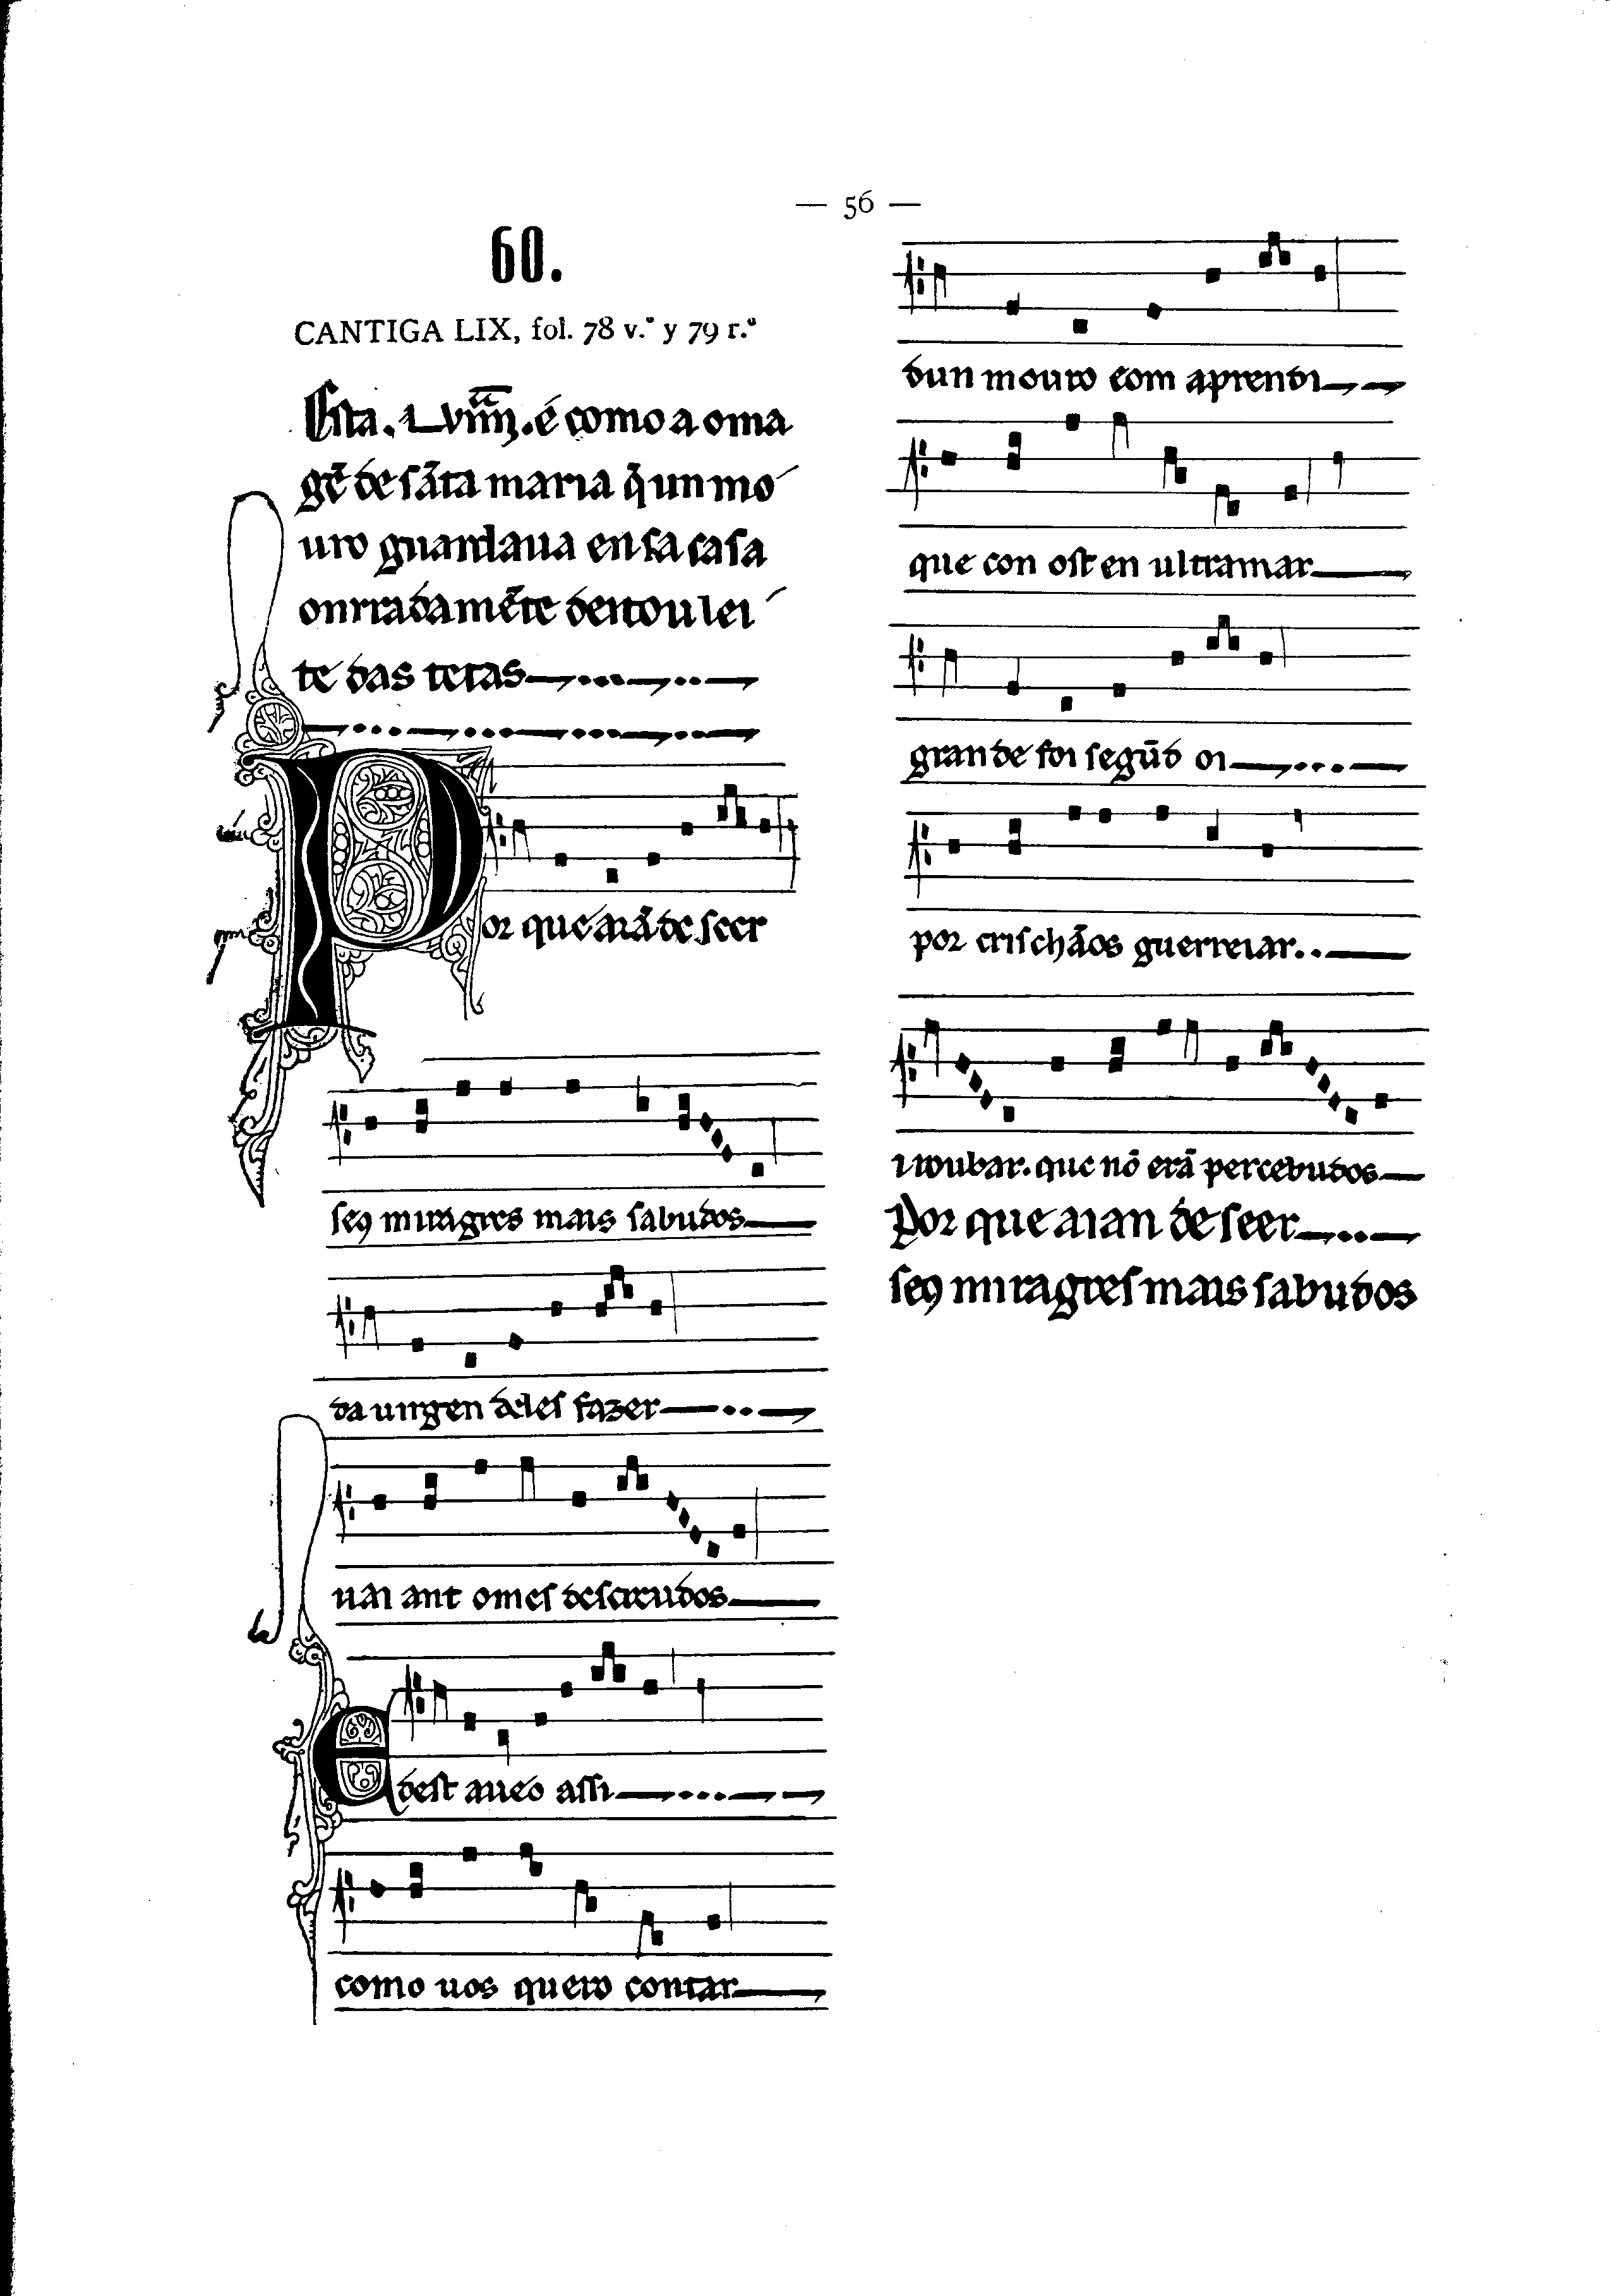 — 56 —
60.
CANTIGA LIX, fol. 78 v.º y 79 r.º
Esta .LVIIII. é como a oma
gẽ de sãta maria q̃ un mo
uro guardaua en sa casa
onrradamẽte deitou lei
te das tetas
Por que aiã de seer
seꝯ miragres mais sabudos
da uirgen deles fazer
uai ant omes descreudos
E dest aueo assi
como uos quero contar
dun mouro com aprendi
que con ost en ultramar
grande foi segũd oi
por crischãos guerreiar.
i roubar. que nõ erã percebudos
Por que aian de seer
seꝯ miragres mais sabudos